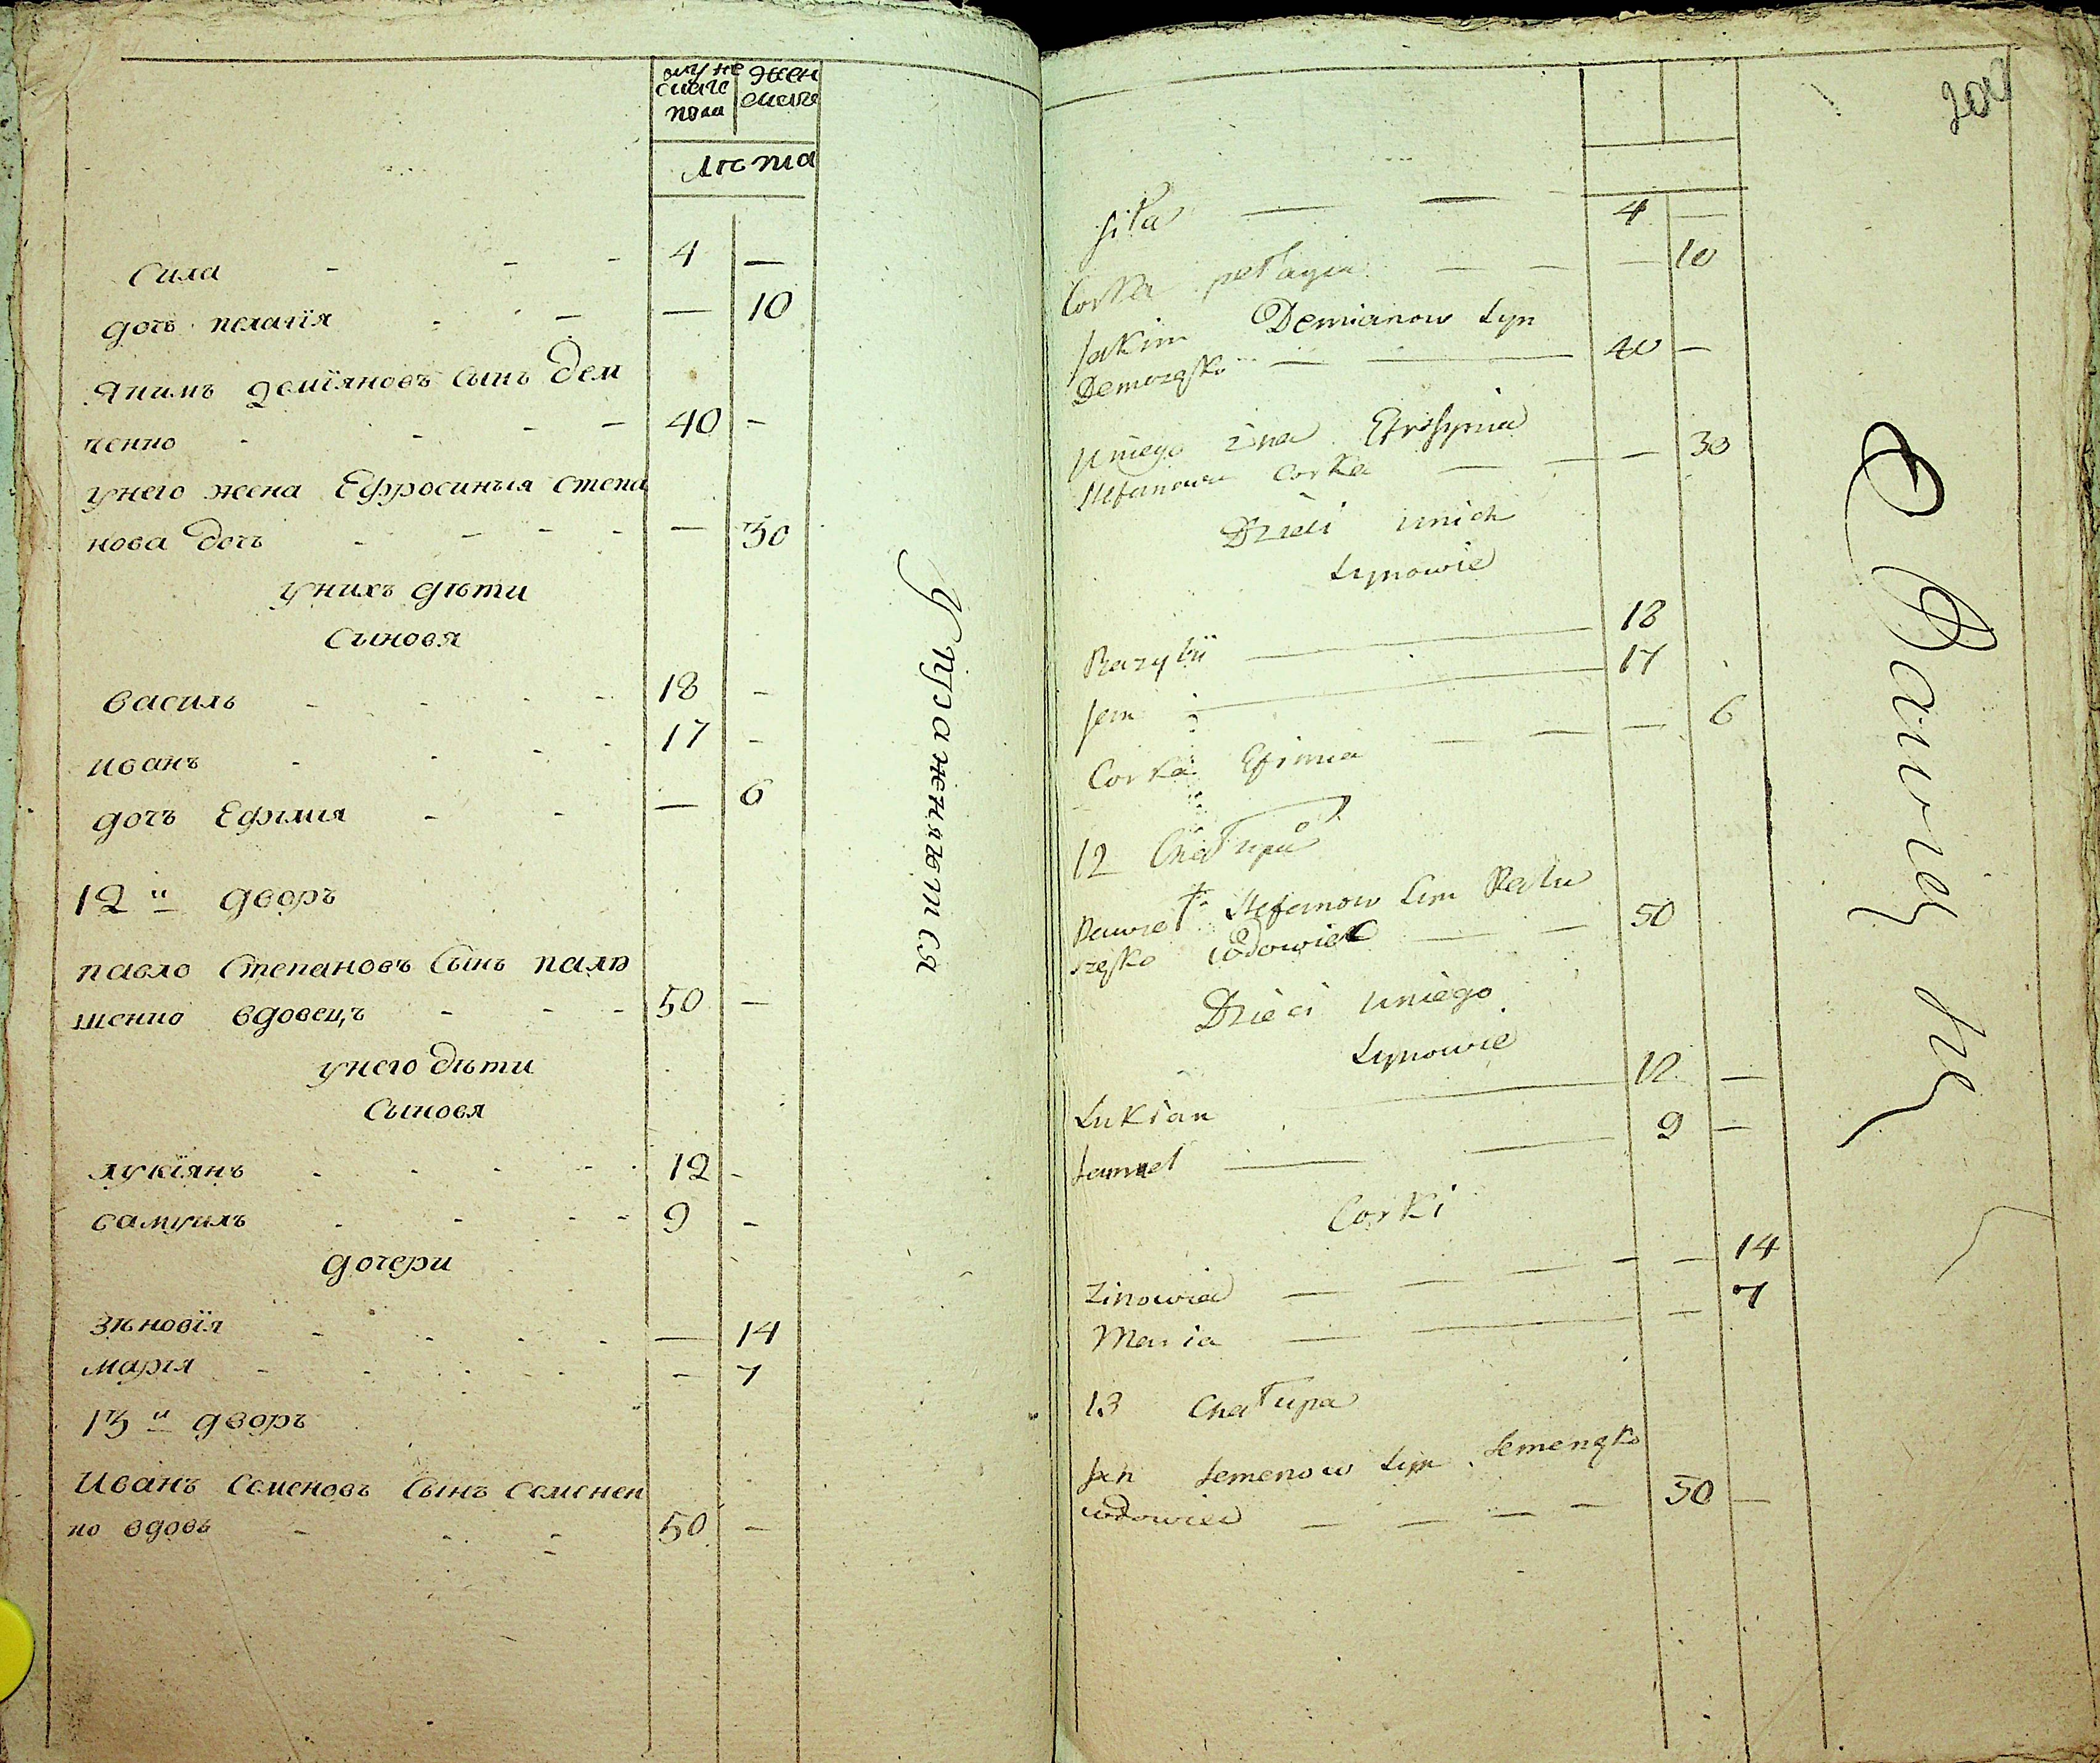 муже женс
скаго скаго
пола
лѣта
Сила - - - 4 —
дочъ пелагїя - - — 10
Якимъ демїяновъ Сынъ Дем
ченко - - - - 40 -
унего жена Ефросинья степа
нова Дочъ - - - - — 30
унихъ дѣти
Сыновя
василь - - - 18 -
иванъ - - - - 17 -
дочъ Ефимия - - — 6
12й дворъ
павло Степановъ Сынъ палѣ
шенко вдовецъ - - - 50 —
унего Дѣти
Сыновя
лукїянъ - - - - 12 -
самуилъ - - - - 9 -
дочери
Зѣновїя - - - - — 14
мария - - - - - 7
13й дворъ
Иванъ Семеновъ Сынъ Семенен
ко вдовъ - - - 50 -
Siła — — 4 —
Corka pełagia — — — 10
Jakim Demianow Syn
Demczęko — — 40 —
Uniego żna Efrosynia
Stefanowa Corka — — — 30
Dzieci unich
Synowie
Bazylii — 18
Jan — 17
Corka Efimia — — — 6
12 Chałupa
Paweł Stefanow Syn Palu
szęko wdowiec — — 50
Dzieci Uniego
Synowie
Lukian — 12 —
Samuel — — 9 —
Corki
Zinowia — — — — — 14
Maria — — — 7
13 Chałupa
Jan Semenow Syn Semenęko
wdowiec — — — 50 —